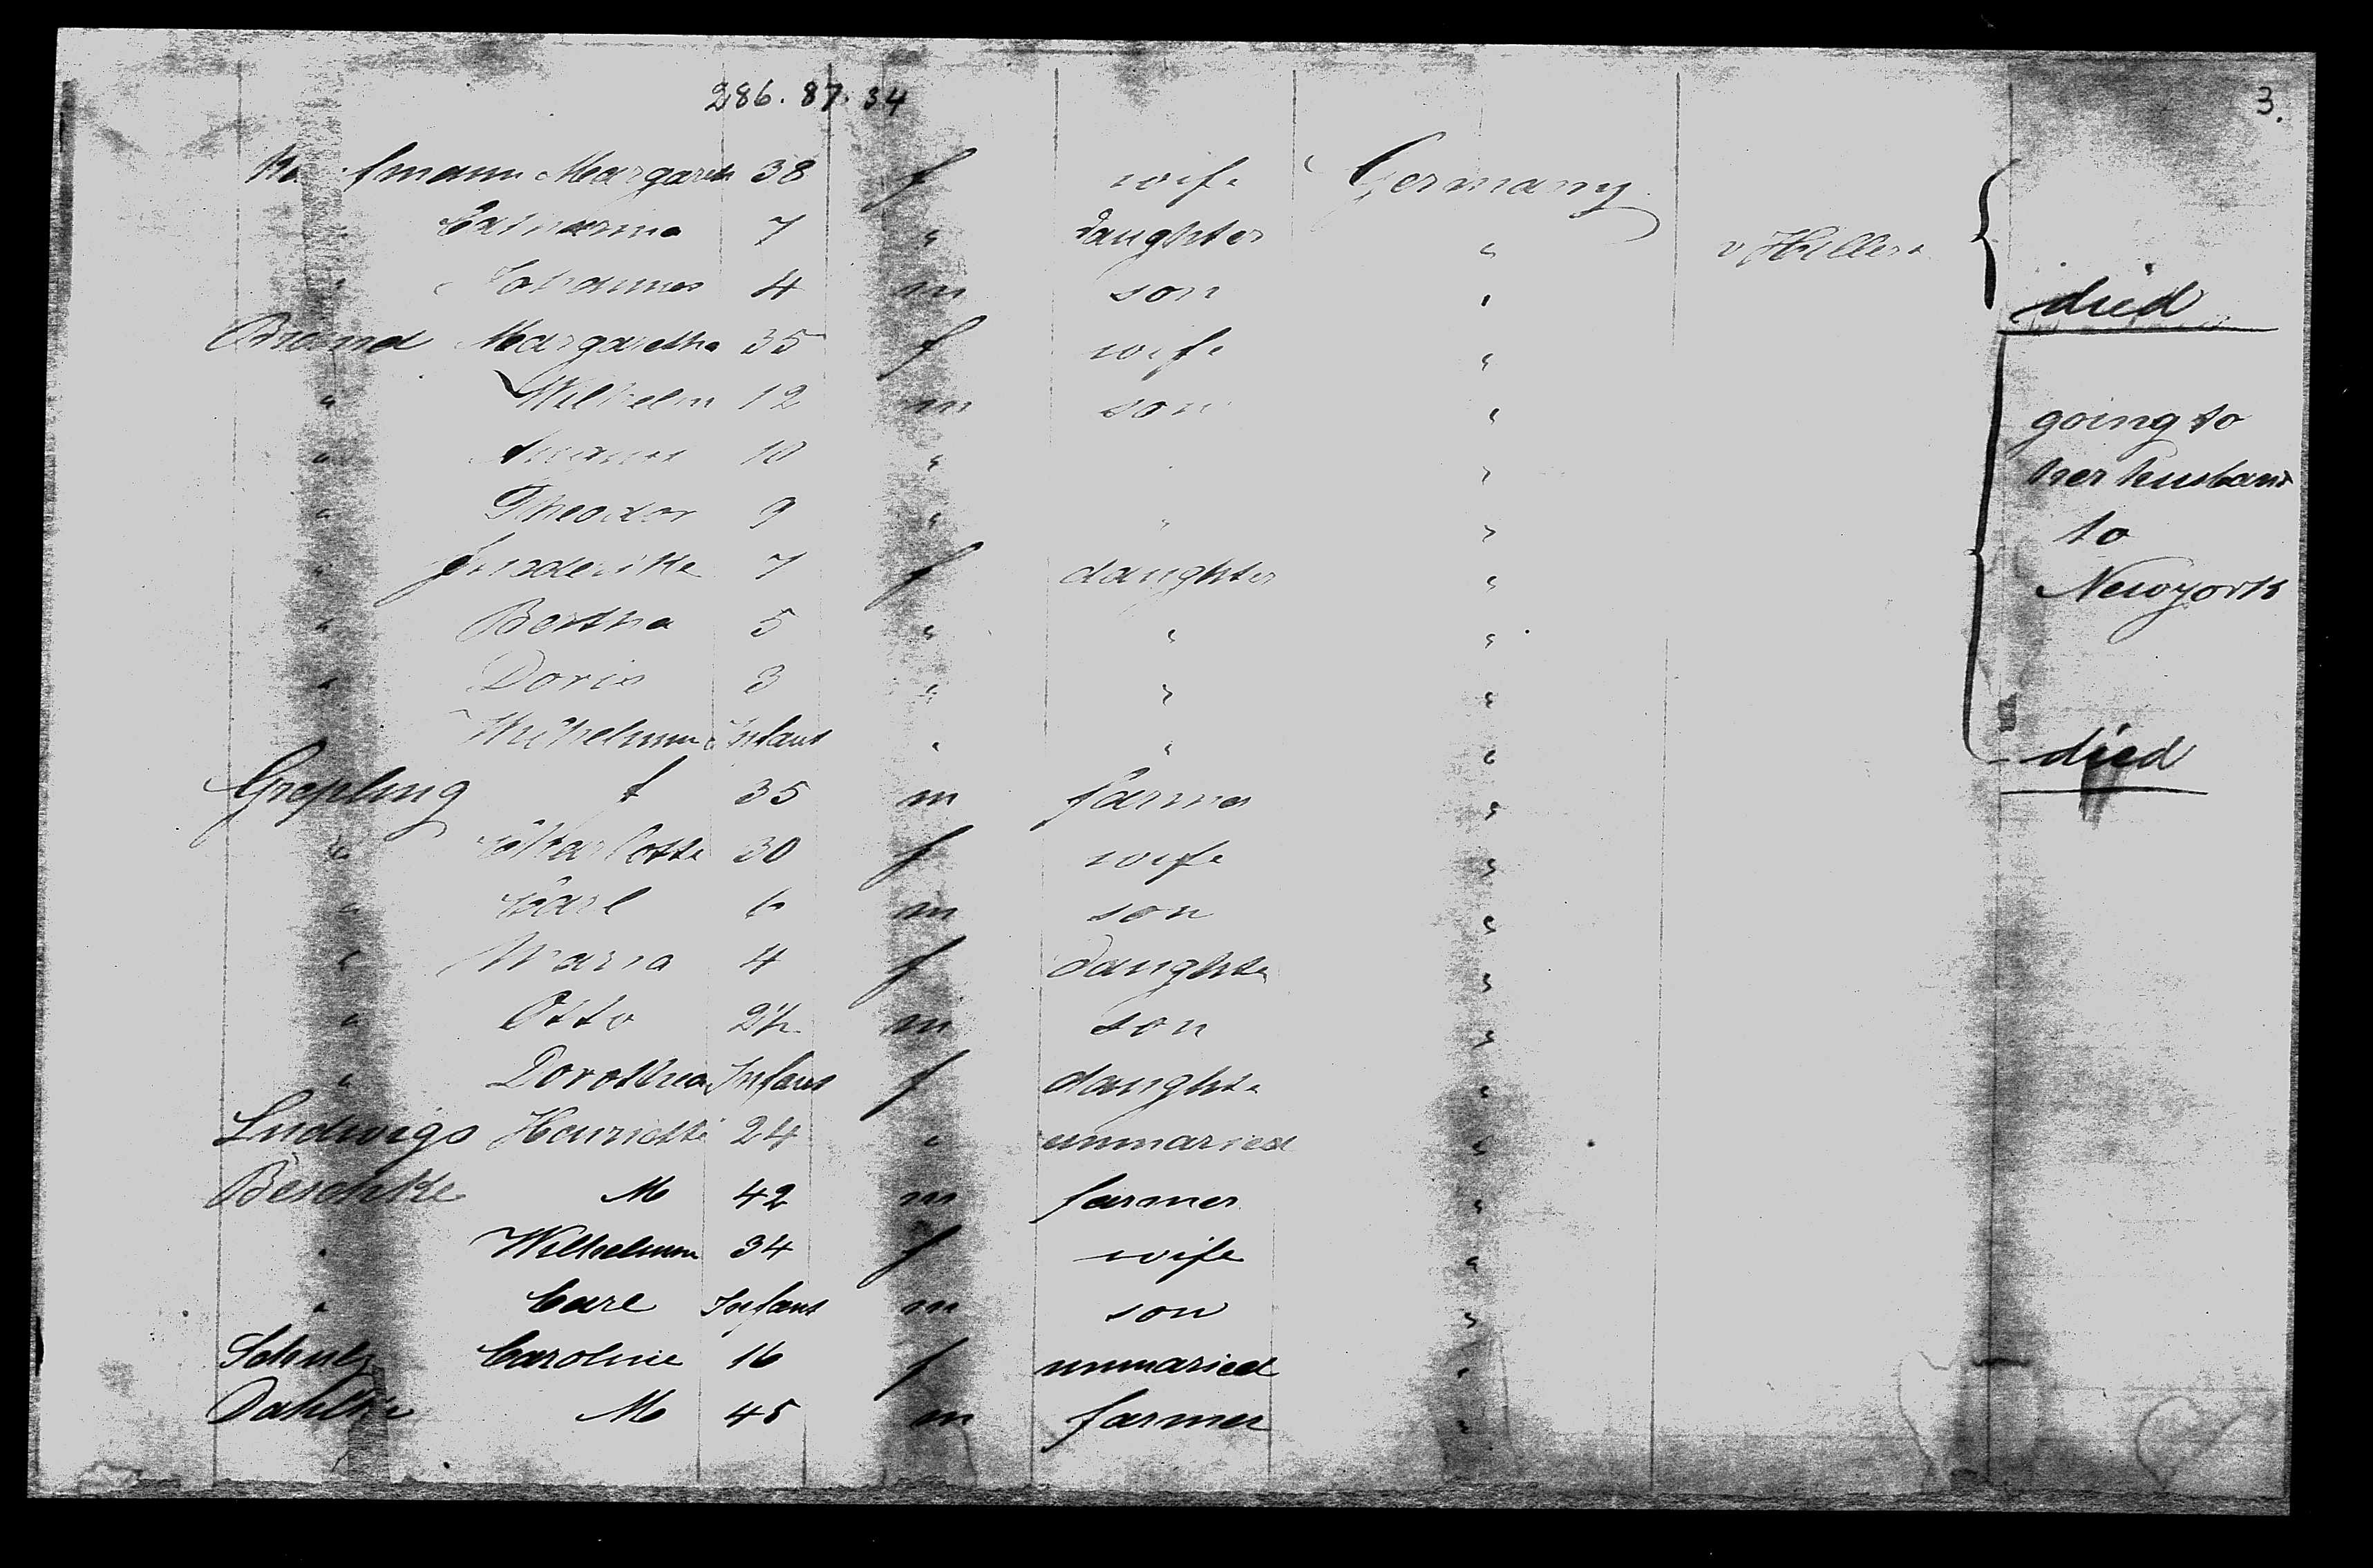 286. 87. 34 3.
Margareth 38 f wife Germany
Catharina 7 " daughter " v Hillern
" Johannes 4 m son " died
Braund Margaretha 35 f wife "
" Wilhelm 12 m son " going to
" August 10 " " her husband
" Theodor 9 " " " to
" Friederike 7 f daughter " Newyork
" Bertha 5 " " "
" Doris 3 " " "
Wilhelmine Infant " " " died
Grepling f 35 m farmer "
" Charlotte 30 f wife "
" Carl 6 m son "
" Maria 4 f daughter "
" Otto 2½ m son "
" Dorothea Infant f daughter "
Ludwigs Henriette 24 " unmaried "
Beschke M 42 m farmer "
" Wilhelmine 34 f wife "
" Carl Infant m son "
Schulz Caroline 16 f unmaried "
Dahlke M 45 m farmer "